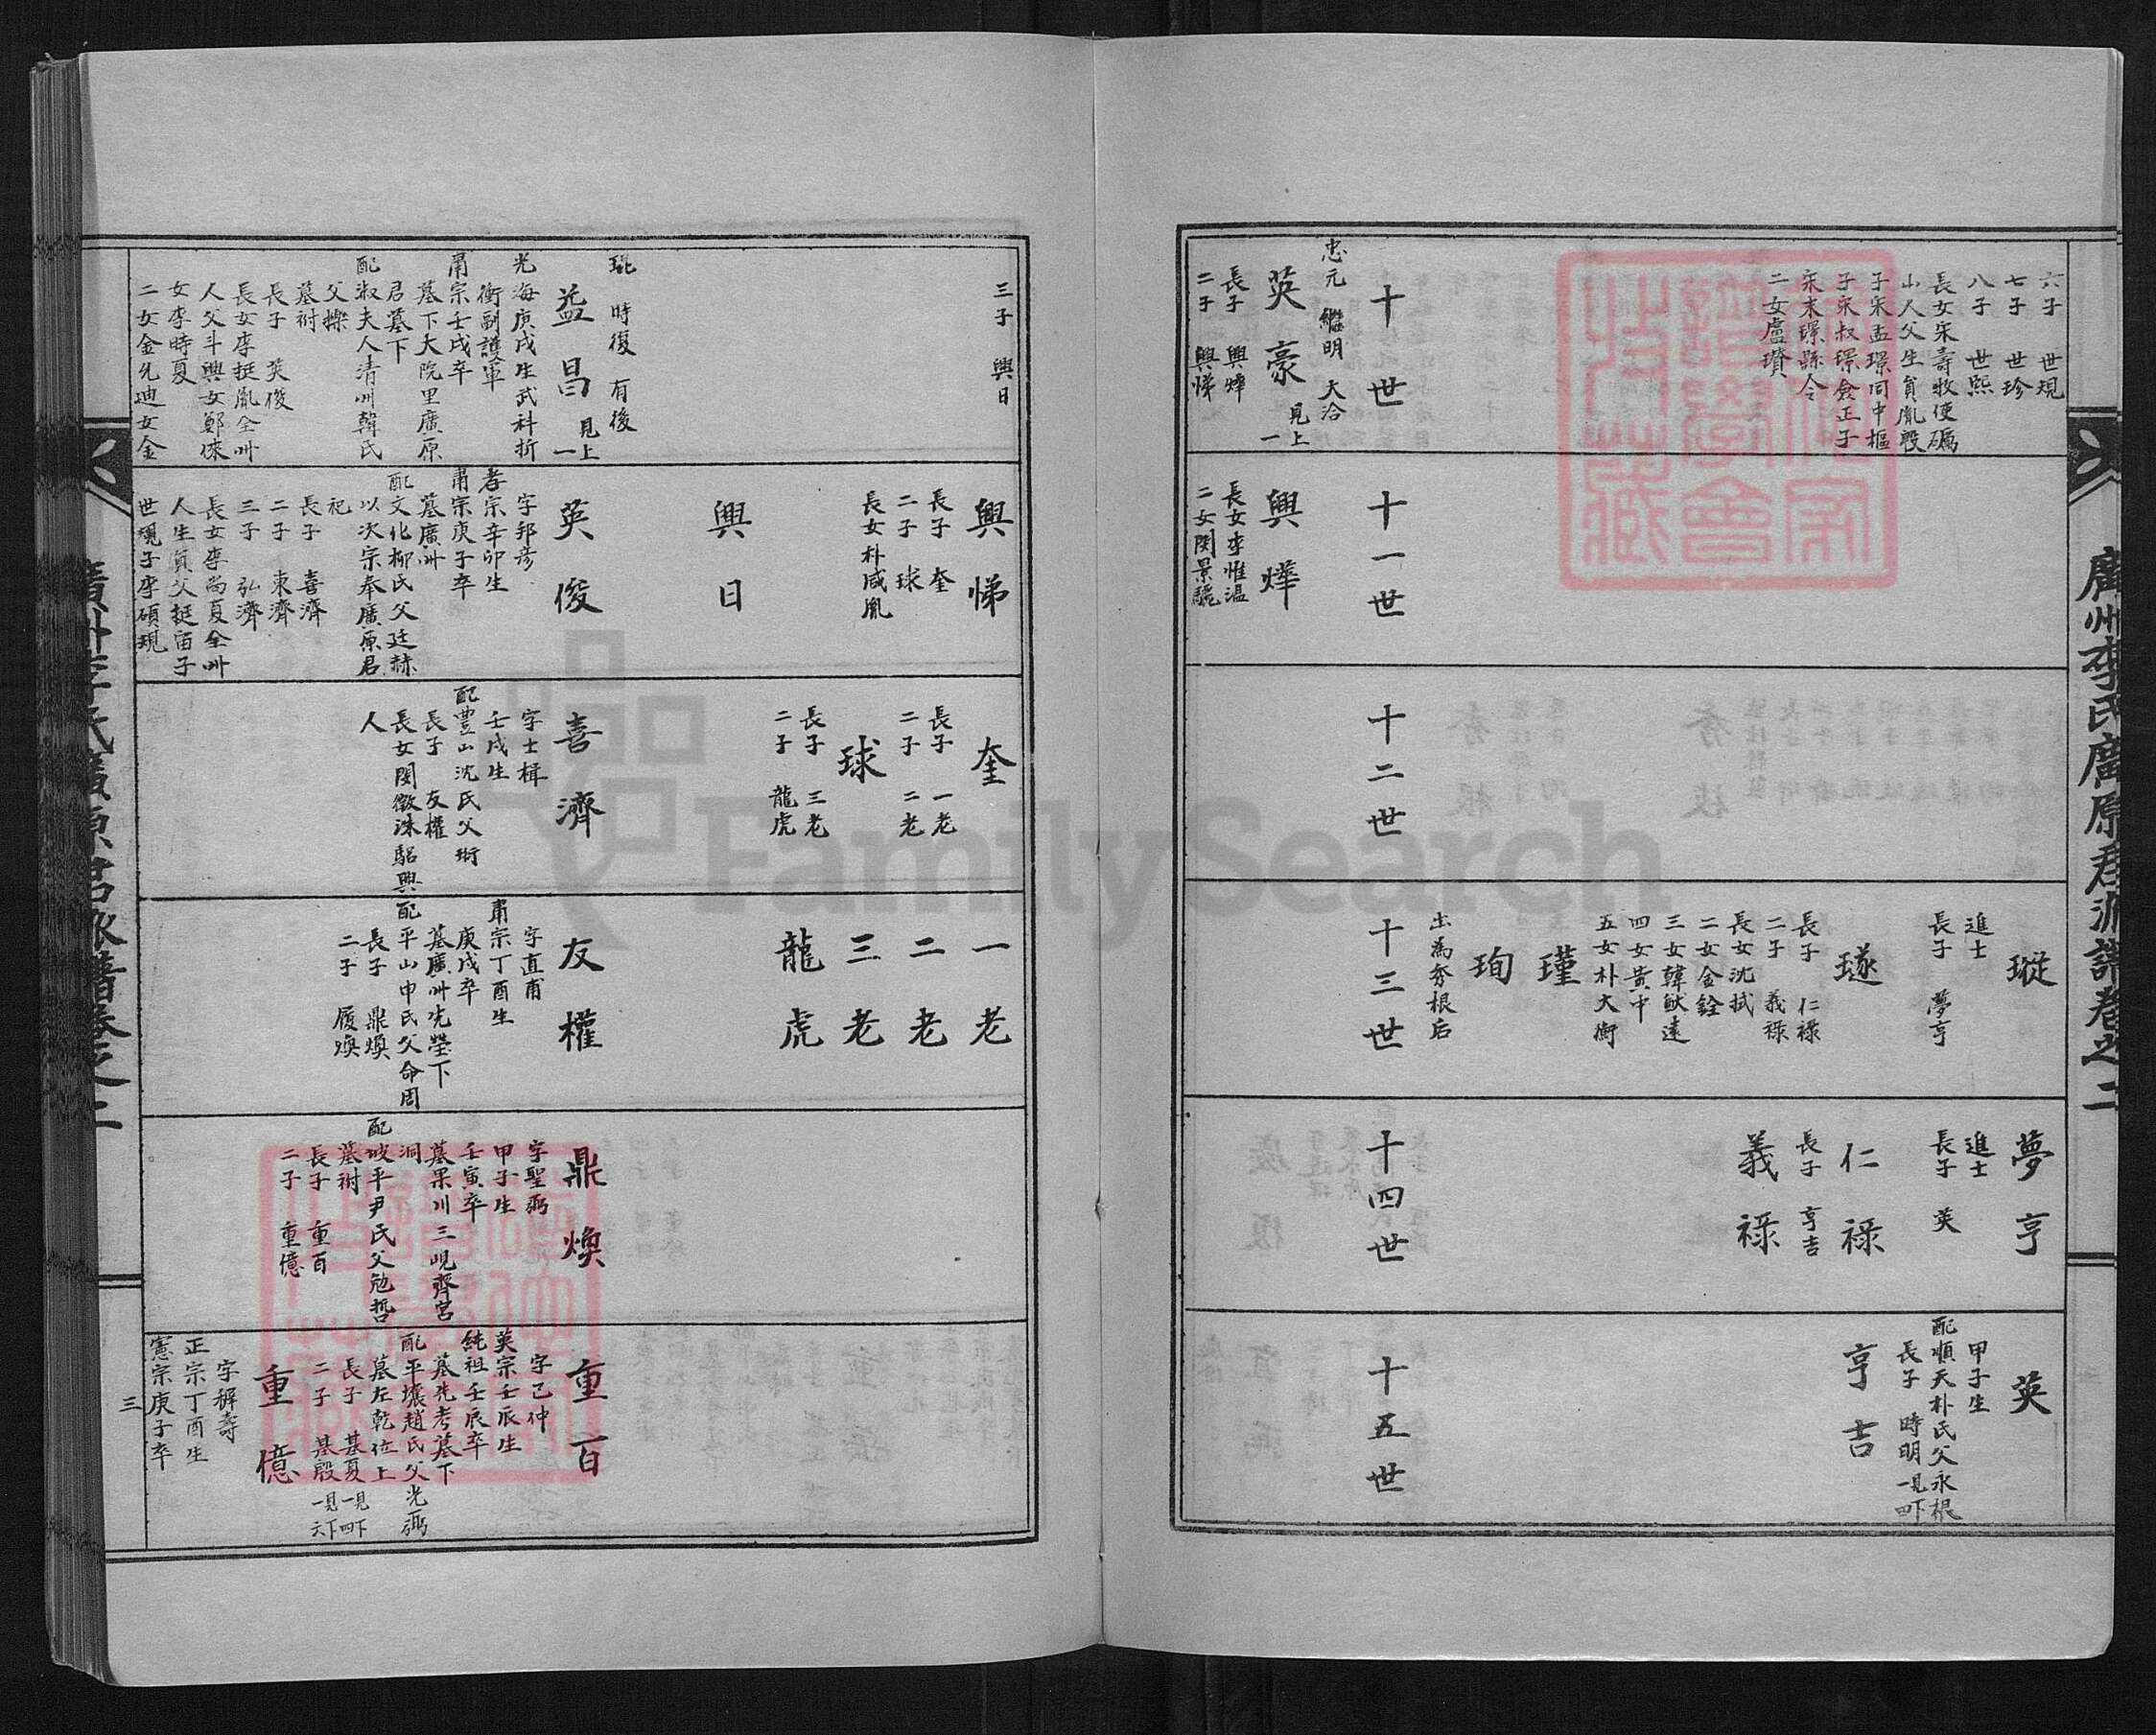 廣州李氏廣原君派譜卷之二
六子 世規
七子 世珍
八子 世熙
長女宋壽牧使礪
山人父生員胤殷
子宋孟璟同中樞
子宋叔璟僉正子
宋末璟縣令
二女盧瓆
十世
忠元 繼明 大洽
英豪 見上一
長子 興燁
二子 興悌
十一世
興燁
長女李惟溫
二女閔景騩
十二世
瑽
進士
長子 夢亨
璲
長子 仁祿
二子 義祿
長女沈拭
二女金銓
三女韓猷遠
四女黃中
五女朴大衡
瑾
珣
出為秀根后
十三世
夢亨
進士
長子 英
仁祿
長子 亨吉
義祿
十四世
英
甲子生
配順天朴氏父永根
長子 時明 見下一四
亨吉
十五世
三子 興日
琨 時復 有後
益昌 見上一
光海庚戌生武科折
衝副護軍
肅宗壬戌卒
墓下大院里廣原
君墓下
配淑夫人清州韓氏
父擽
墓祔
長子 英俊
長女李挺胤全州
人父斗興女鄭倈
女李時夏
二女金兌迪女金
興悌
長子 奎
二子 球
長女朴咸胤
興日
英俊
字邦彦
孝宗辛卯生
肅宗庚子卒
墓廣州
配文化柳氏父廷赫
以次宗奉廣原君
祀
長子 喜濟
二子 東濟
三子 弘濟
長女李尚夏全州
人生員父挺宙子
世魂子李碩現
奎
長子 一老
二子 二老
球
長子 三老
二子 龍虎
喜濟
字士楫
壬戌生
配豊山沈氏父珩
長子 友權
長女閔徵洙驪興
人
一老
二老
三老
龍虎
友權
字直甫
肅宗丁酉生
庚戌卒
墓廣州先塋下
配平山申氏父命周
長子 鼎煥
二子 履煥
鼎煥
字聖弼
甲子生
壬寅卒
墓果川三峴齊宮
洞
配坡平尹氏父勉哲
墓祔
長子 重百
二子 重億
重百
字己仲
英宗壬辰生
純祖壬辰卒
墓先考墓下
配平壤趙氏父光弼
墓左乾位上
長子 基夏 見下一四
二子 基殷 見下一六
重億
字穉壽
正宗丁酉生
憲宗庚子卒
三